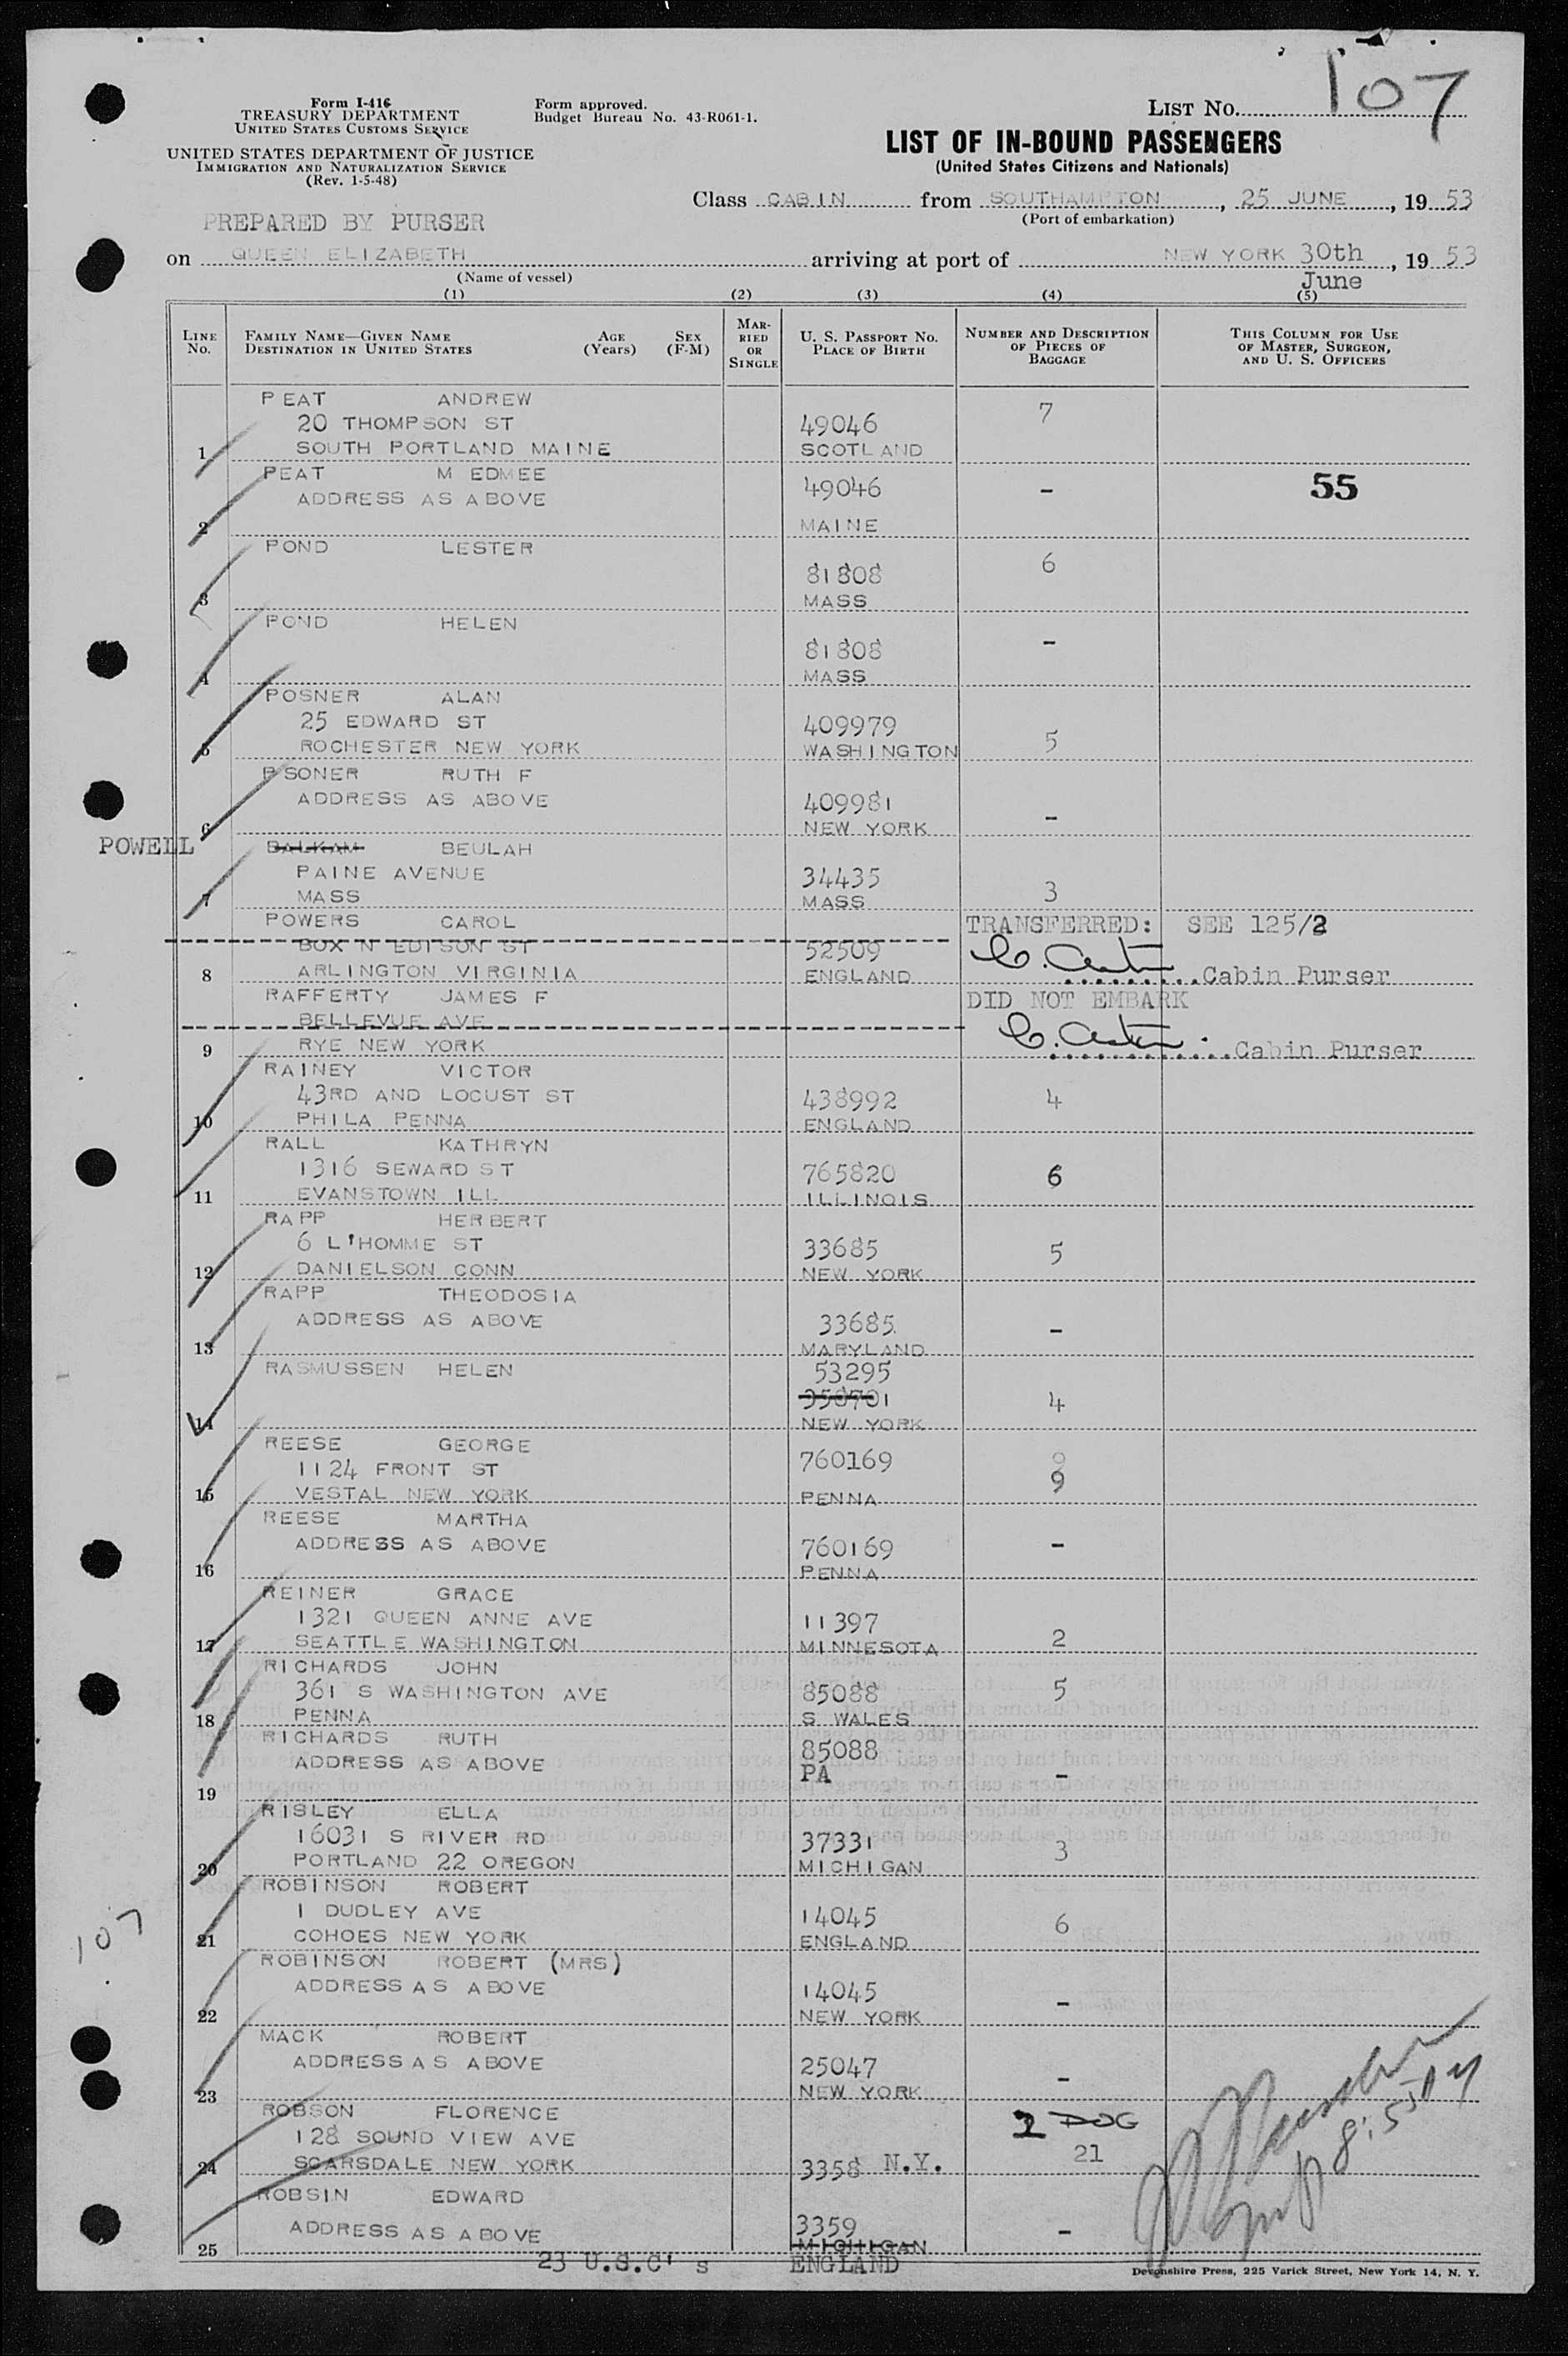 107
Form I-416
TREASURY DEPARTMENT
UNITED STATES CUSTOMS SERVICE
UNITED STATES DEPARTMENT OF JUSTICE
IMMIGRATION AND NATURALIZATION SERVICE
(Rev. 1-5-48)
Form approved.
Budget Bureau No. 43-R061-1.
LIST No.
LIST OF IN-BOUND PASSENGERS
(United States Citizens and Nationals)
Class CABIN from SOUTHAMPTON, 25 JUNE, 1953
(Port of embarkation)
PREPARED BY PURSER
on QUEEN ELIZABETH arriving at port of NEW YORK 30th June, 1953
(Name of vessel)
(1) (2) (3) (4) (5)
LINE No. FAMILY NAME—GIVEN NAME DESTINATION IN UNITED STATES AGE (Years) SEX (F-M) MARRIED OR SINGLE U. S. PASSPORT No. PLACE OF BIRTH NUMBER AND DESCRIPTION OF PIECES OF BAGGAGE THIS COLUMN FOR USE OF MASTER, SURGEON, AND U. S. OFFICERS
PEAT ANDREW 7
20 THOMPSON ST 49046
1 SOUTH PORTLAND MAINE SCOTLAND
PEAT M EDMEE 49046 - 55
ADDRESS AS ABOVE
2 MAINE
POND LESTER 6
81808
3 MASS
POND HELEN -
81808
4 MASS
POSNER ALAN
25 EDWARD ST 409979
5 ROCHESTER NEW YORK WASHINGTON 5
PSONER RUTH F
ADDRESS AS ABOVE 409981
6 NEW YORK -
POWELL BALKAM BEULAH
PAINE AVENUE 34435
7 MASS MASS 3
POWERS CAROL TRANSFERRED: SEE 125/2
BOX N EDISON ST 52509
8 ARLINGTON VIRGINIA ENGLAND Cabin Purser
RAFFERTY JAMES F DID NOT EMBARK
BELLEVUE AVE
9 RYE NEW YORK Cabin Purser
RAINEY VICTOR
43RD AND LOCUST ST 438992 4
10 PHILA PENNA ENGLAND
RALL KATHRYN
1316 SEWARD ST 765820 6
11 EVANSTOWN ILL ILLINOIS
RAPP HERBERT
6 L'HOMME ST 33685 5
12 DANIELSON CONN NEW YORK
RAPP THEODOSIA
ADDRESS AS ABOVE 33685 -
13 MARYLAND
RASMUSSEN HELEN 53295
4
14 NEW YORK
REESE GEORGE 760169 9
1124 FRONT ST 9
15 VESTAL NEW YORK PENNA
REESE MARTHA
ADDRESS AS ABOVE 760169 -
16 PENNA
REINER GRACE
1321 QUEEN ANNE AVE 11397
17 SEATTLE WASHINGTON MINNESOTA 2
RICHARDS JOHN
361 S WASHINGTON AVE 85088 5
18 PENNA S WALES
RICHARDS RUTH 85088
ADDRESS AS ABOVE PA -
19
RISLEY ELLA
16031 S RIVER RD 37331 3
20 PORTLAND 22 OREGON MICHIGAN
ROBINSON ROBERT
1 DUDLEY AVE 14045 6
21 COHOES NEW YORK ENGLAND
ROBINSON ROBERT (MRS)
ADDRESS AS ABOVE 14045 -
22 NEW YORK
107
MACK ROBERT
ADDRESS AS ABOVE 25047 -
23 NEW YORK
ROBSON FLORENCE DOG
128 SOUND VIEW AVE 21
24 SCARSDALE NEW YORK 3358 N.Y.
ROBSIN EDWARD
ADDRESS AS ABOVE 3359 -
25 MICHIGAN
23 U.S.C's ENGLAND
Devonshire Press, 225 Varick Street, New York 14, N. Y.